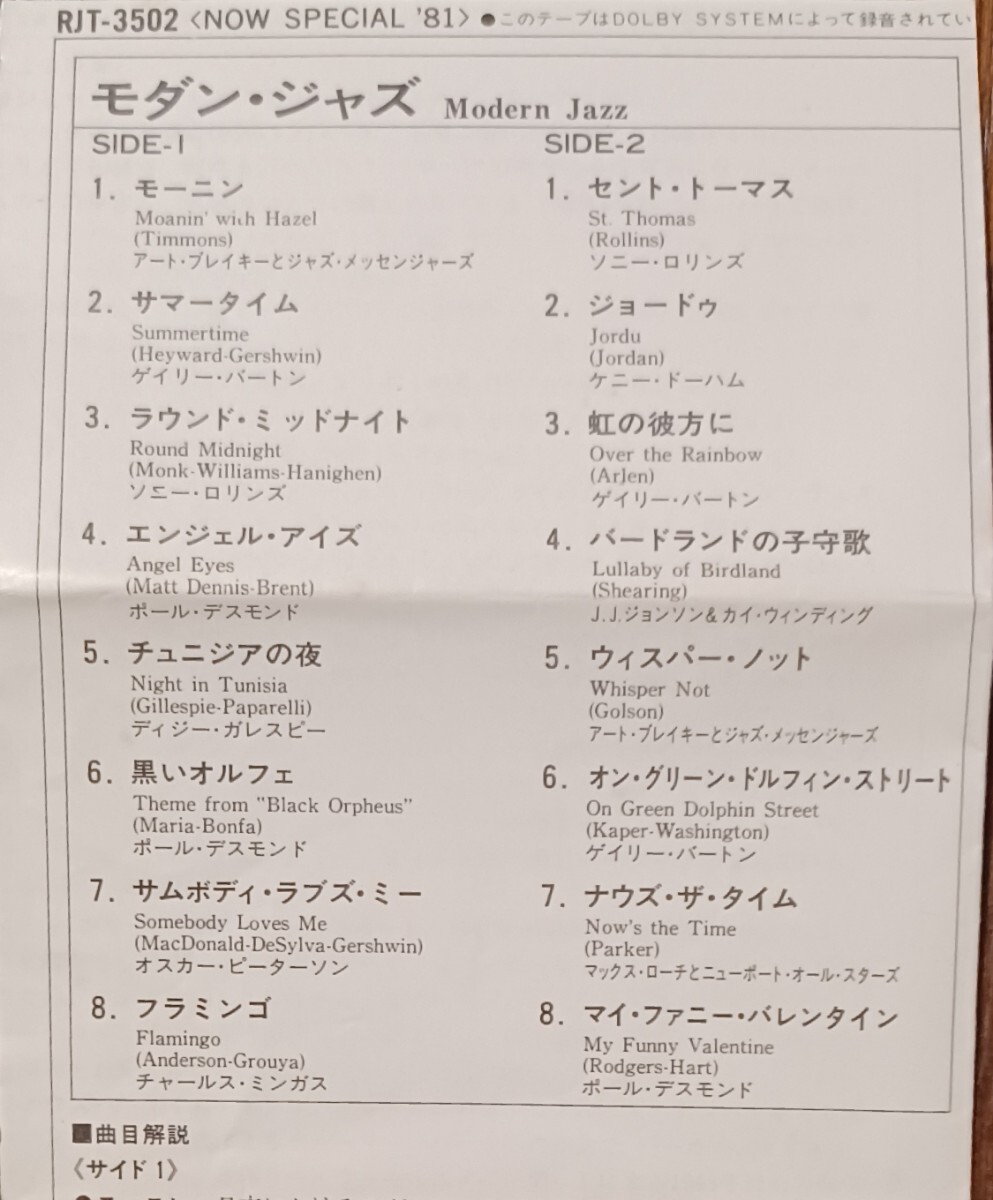 RJT-3502 〈NOW SPECIAL '81〉 ●このテープはDOLBY SYSTEMによって録音されてい
モダン・ジャズ Modern Jazz
SIDE-1
1. モーニン
Moanin' with Hazel
(Timmons)
アート・ブレイキーとジャズ・メッセンジャーズ
2. サマータイム
Summertime
(Heyward-Gershwin)
ゲイリー・バートン
3. ラウンド・ミッドナイト
Round Midnight
(Monk-Williams-Hanighen)
ソニー・ロリンズ
4. エンジェル・アイズ
Angel Eyes
(Matt Dennis-Brent)
ポール・デスモンド
5. チュニジアの夜
Night in Tunisia
(Gillespie-Paparelli)
ディジー・ガレスピー
6. 黒いオルフェ
Theme from "Black Orpheus"
(Maria-Bonfa)
ポール・デスモンド
7. サムボディ・ラブズ・ミー
Somebody Loves Me
(MacDonald-DeSylva-Gershwin)
オスカー・ピーターソン
8. フラミンゴ
Flamingo
(Anderson-Grouya)
チャールス・ミンガス
SIDE-2
1. セント・トーマス
St. Thomas
(Rollins)
ソニー・ロリンズ
2. ジョードゥ
Jordu
(Jordan)
ケニー・ドーハム
3. 虹の彼方に
Over the Rainbow
(Arlen)
ゲイリー・バートン
4. バードランドの子守歌
Lullaby of Birdland
(Shearing)
J.J.ジョンソン&カイ・ウィンディング
5. ウィスパー・ノット
Whisper Not
(Golson)
アート・ブレイキーとジャズ・メッセンジャーズ
6. オン・グリーン・ドルフィン・ストリート
On Green Dolphin Street
(Kaper-Washington)
ゲイリー・バートン
7. ナウズ・ザ・タイム
Now's the Time
(Parker)
マックス・ローチとニューポート・オール・スターズ
8. マイ・ファニー・バレンタイン
My Funny Valentine
(Rodgers-Hart)
ポール・デスモンド
■曲目解説
〈サイド1〉